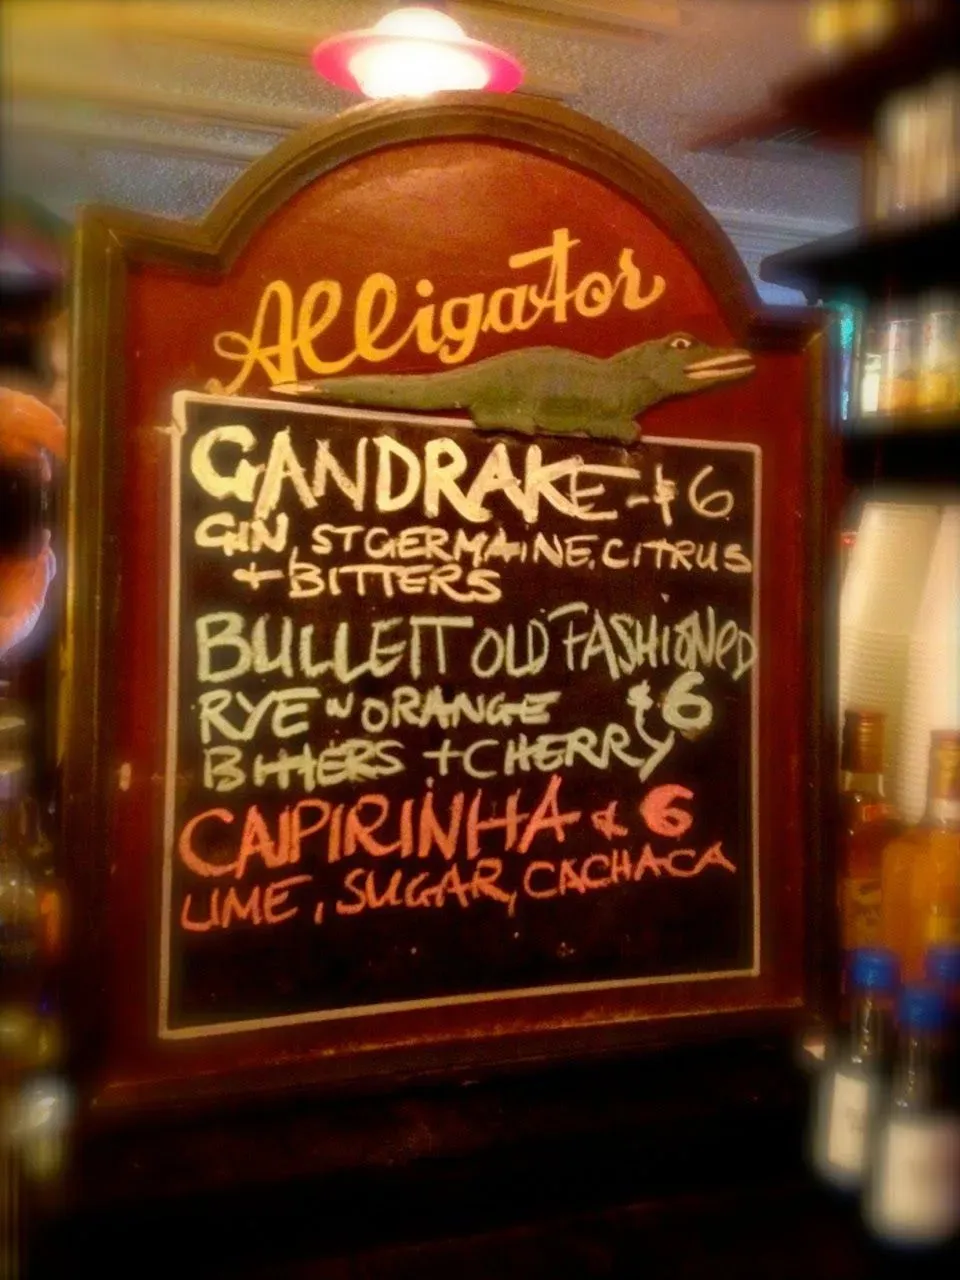 Alligator
GANDRAKE - $6
GIN, ST GERMAINE, CITRUS
+ BITTERS
BULLEIT OLD FASHIONED
RYE W ORANGE $6
BITTERS + CHERRY
CAIPIRINHA $ 6
LIME, SUGAR, CACHACA